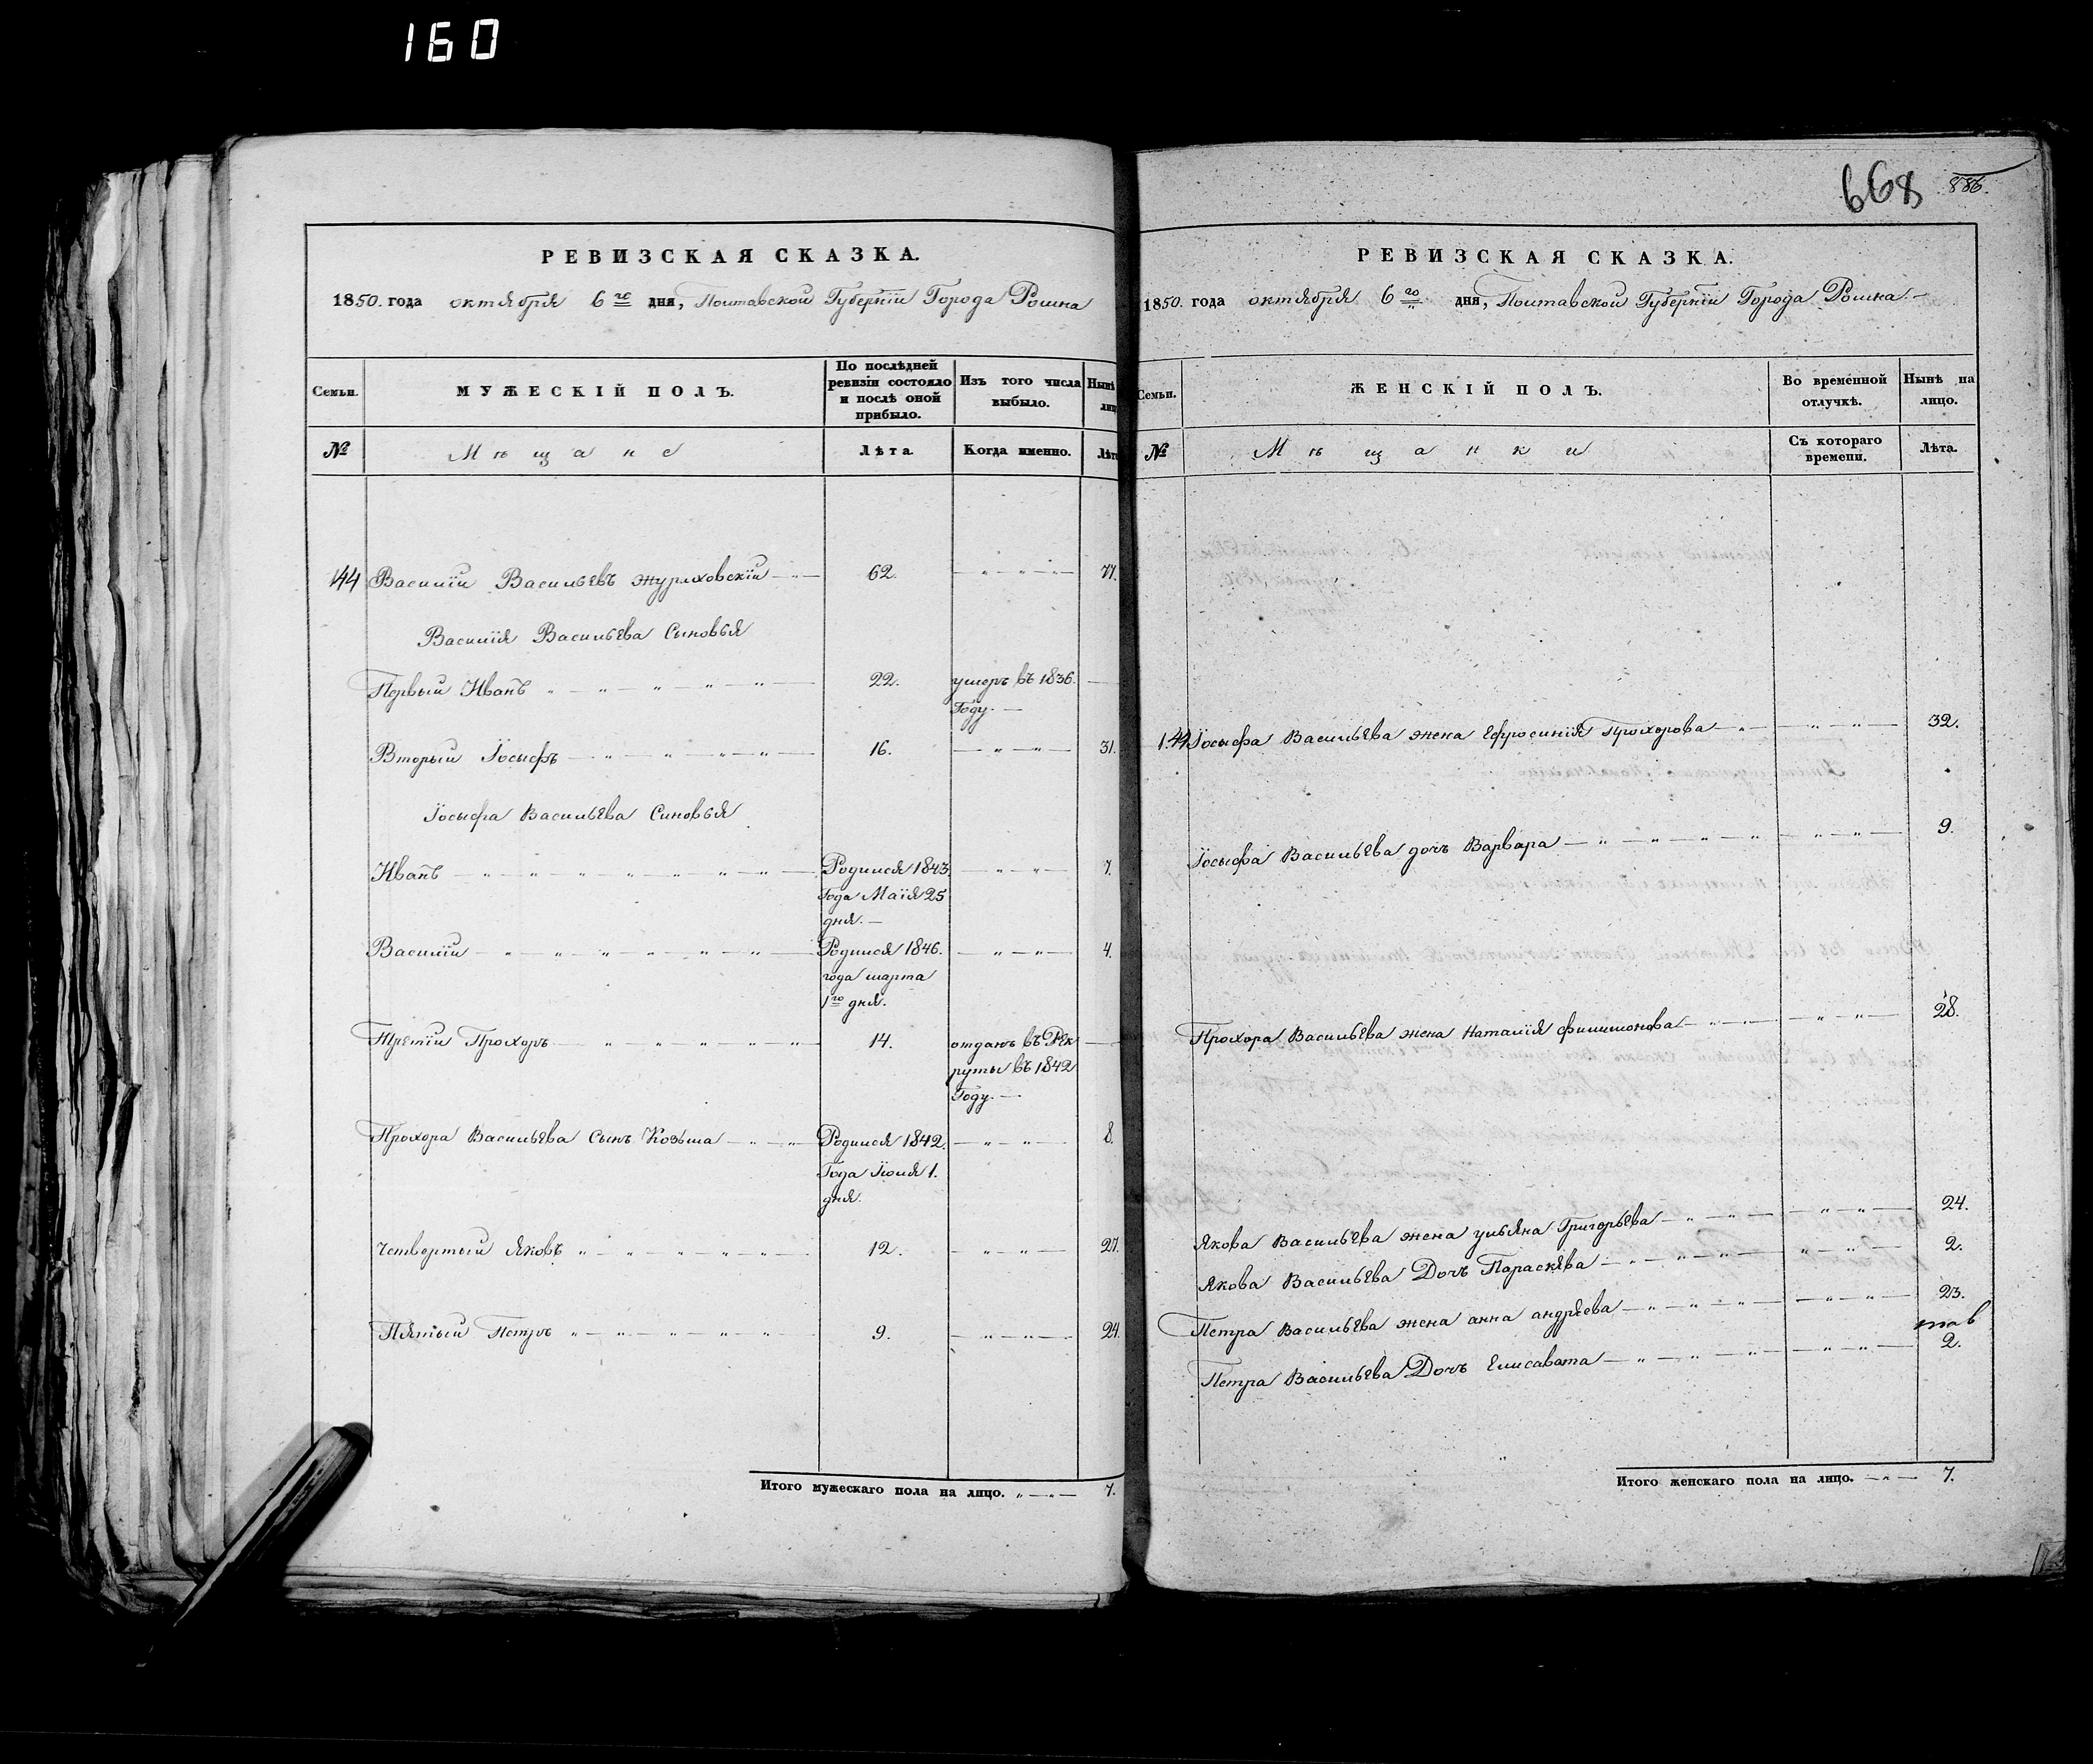 160
РЕВИЗСКАЯ СКАЗКА.
1850. года октября 6го дня, Полтавской Губерніи Города Ромна
Семьи.
МУЖЕСКІЙ ПОЛЪ.
По послѣдней ревизіи состояло и послѣ оной прибыло.
Изъ того числа выбыло.
Нынѣ
№
Мѣщане
Лѣта.
Когда именно.
Лѣта
144 Василій Васильевъ 62. 77.
Василія Васильева Сыновья
Первый Иванъ 22. умеръ въ 1836.
Году.
Вторый Іосыфъ 16. 31.
Іосыфа Васильева Синовья
Иванъ Родился 1843. 7.
Года Маія 25
дня.
Василій Родился 1846. 4.
года марта
1го дня.
Третій Прохоръ 14. отданъ въ Рек
руты въ 1842
Году.
Прохора Васильева Сынъ Козьма Родился 1842. 8.
Года Іюля 1.
дня.
Четвертый Яковъ 12. 27.
Пятый Петръ 9. 24.
Итого мужескаго пола на лицо. 7.
668 886.
РЕВИЗСКАЯ СКАЗКА.
1850. года октября 6го дня, Полтавской Губерніи Города Ромна
Семьи.
ЖЕНСКІЙ ПОЛЪ.
Во временной отлучкѣ.
Нынѣ на лицо.
№
Мѣщанки
Съ котораго времени.
Лѣта.
144 Іосыфа Васильева жена Ефросинія Прохорова 32.
Іосыфа Васильева дочь Варвара 9.
Прохора Васильева жена Наталія Филимонова 28.
Якова Васильева жена ульяна Григорьева 24.
Якова Васильева Дочь Параскева 2.
Петра Васильева жена анна андреева 23.
Петра Васильева Дочь Елисавета 2.
Итого женскаго пола на лицо. 7.